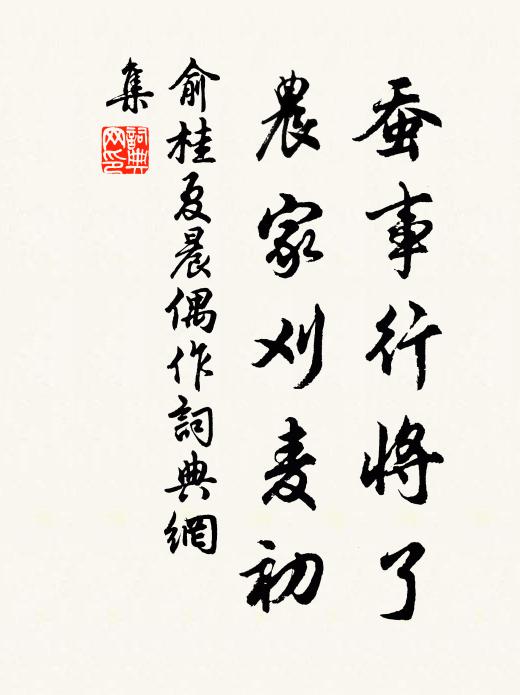 蚕事行将了
農家刈麦初
俞桂夏晨偶作詞典網
集
詞典網印